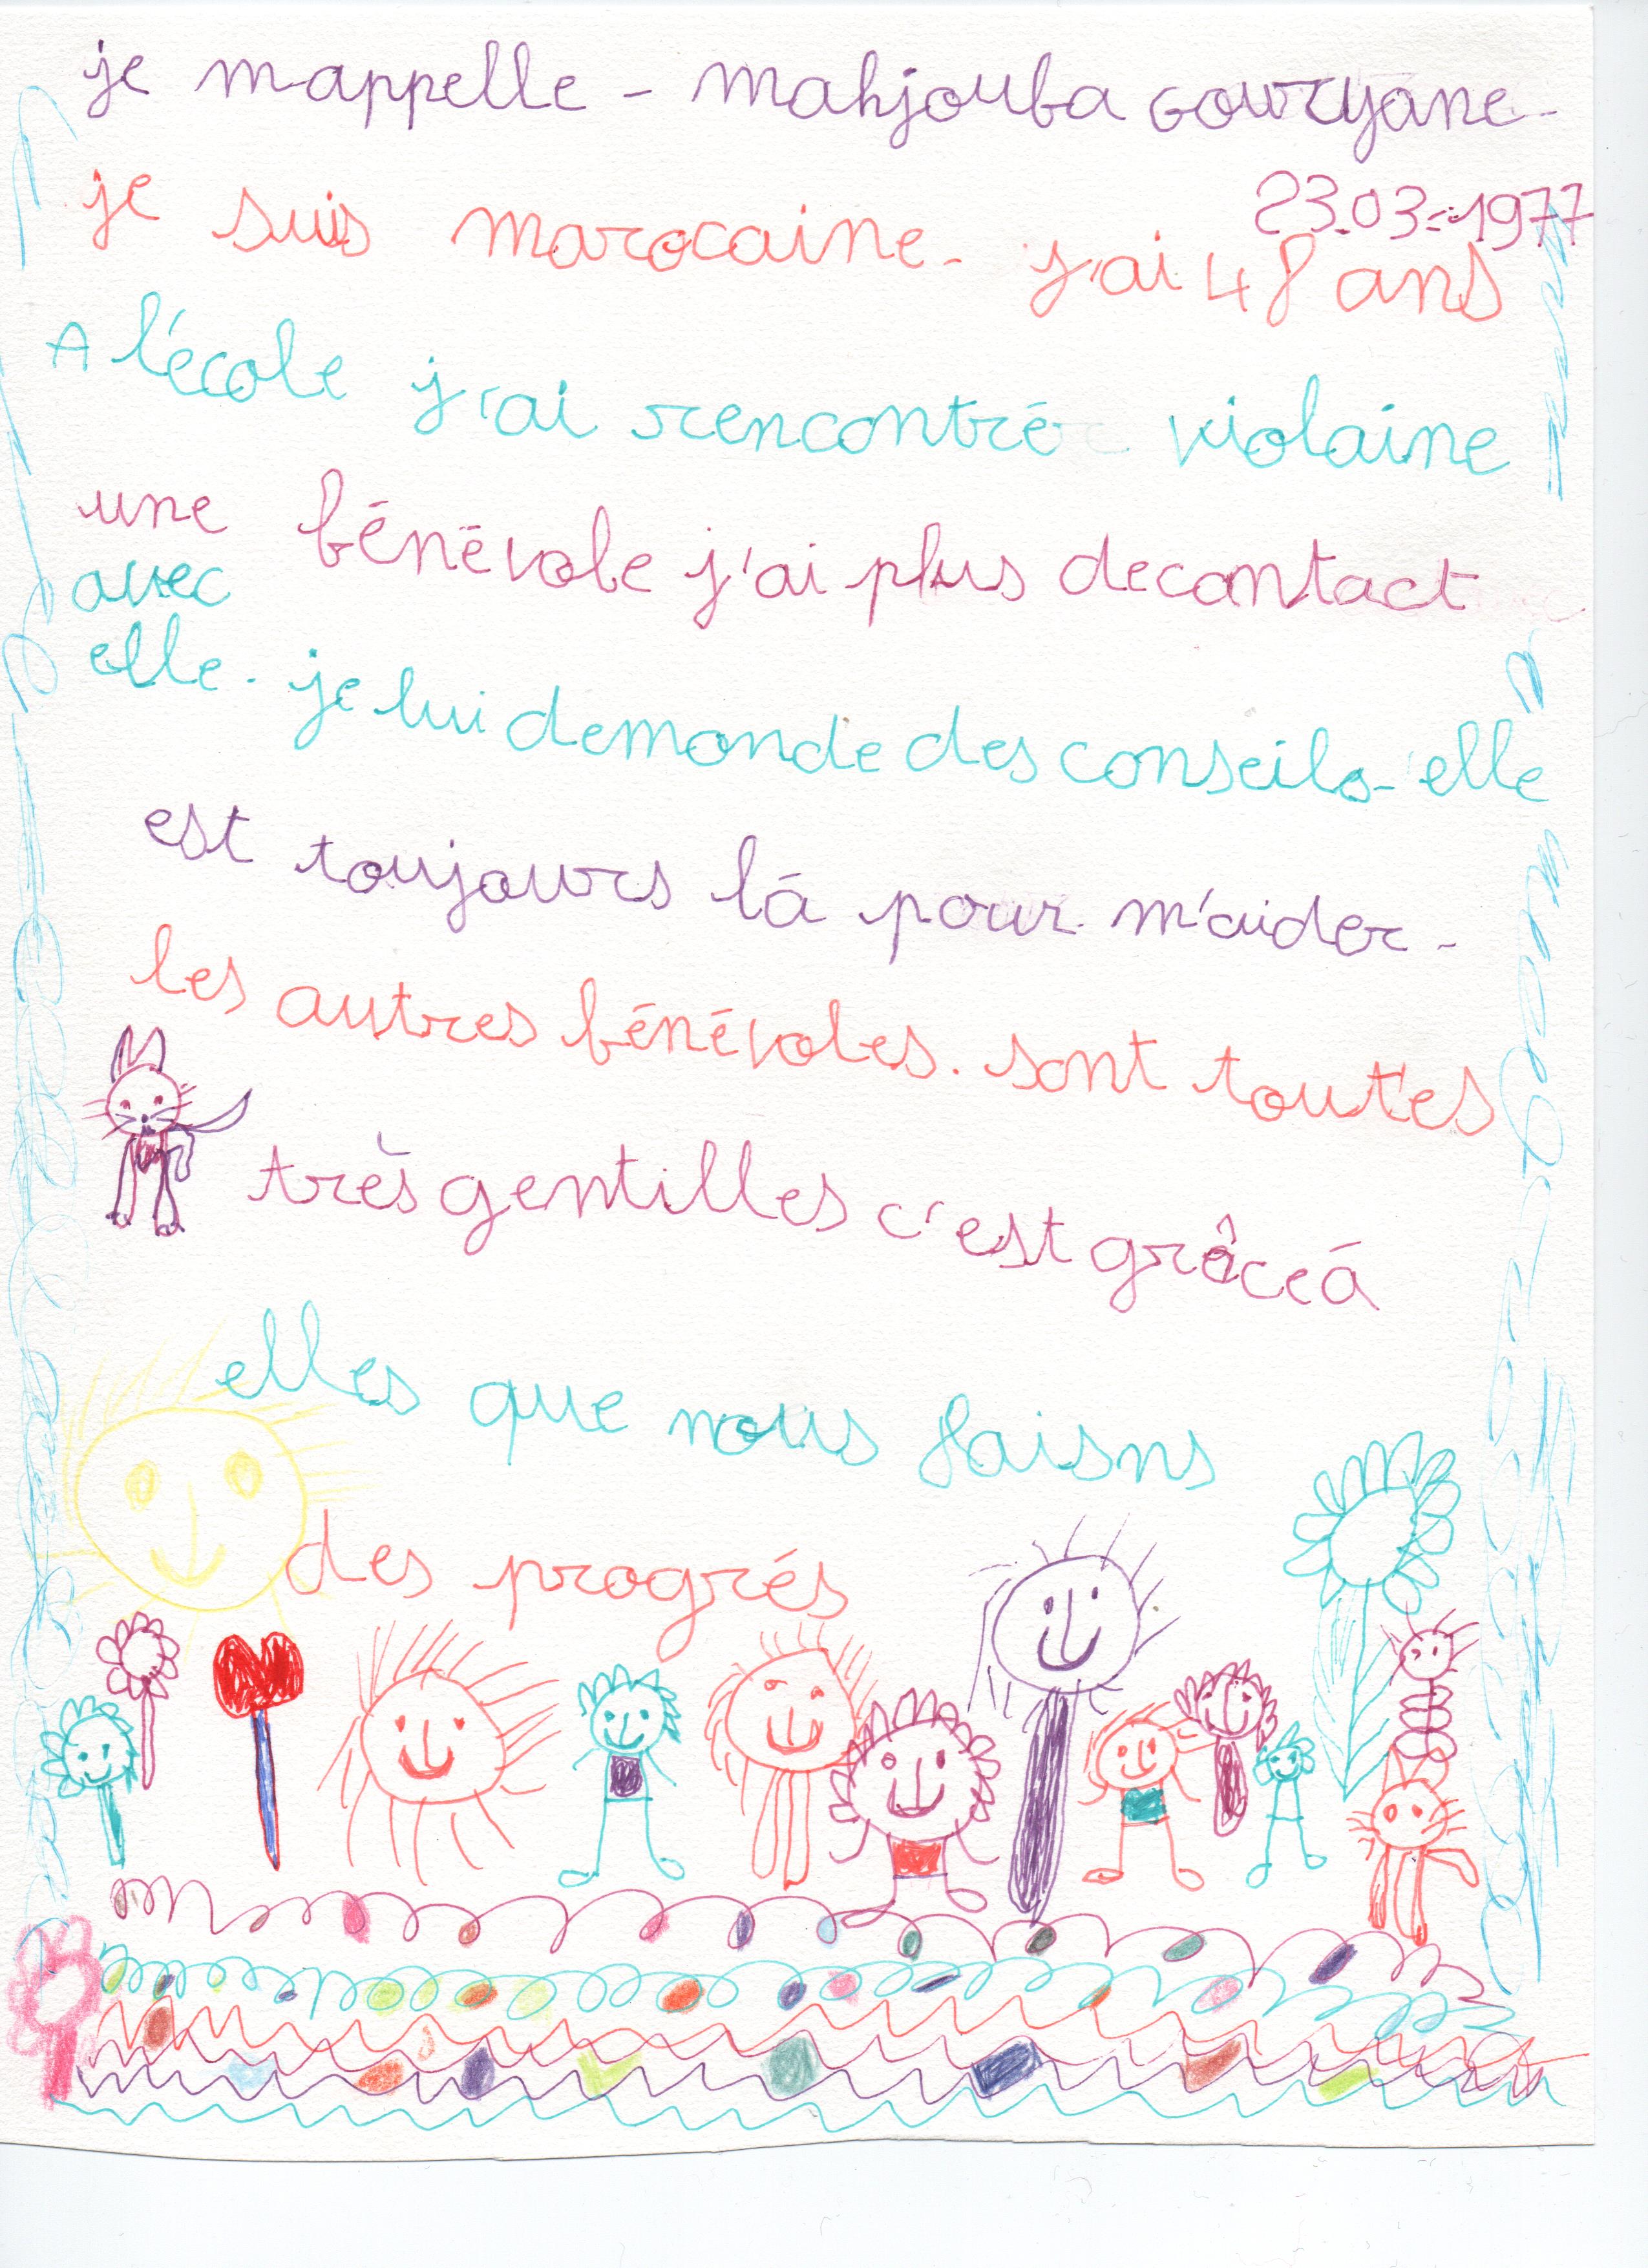 je mappelle - mahjouba gouryane-
23.03-1977
je suis marocaine- j'ai 48 ans
A l'école j'ai rencontré violaine
une bénévole j'ai plus decontact
avec
elle. je lui demande des conseils- elle
est toujours là pour m'aider-
les autres bénévoles. sont toutes
très gentilles c'est grâceá
elles que nous faisns
des progrés